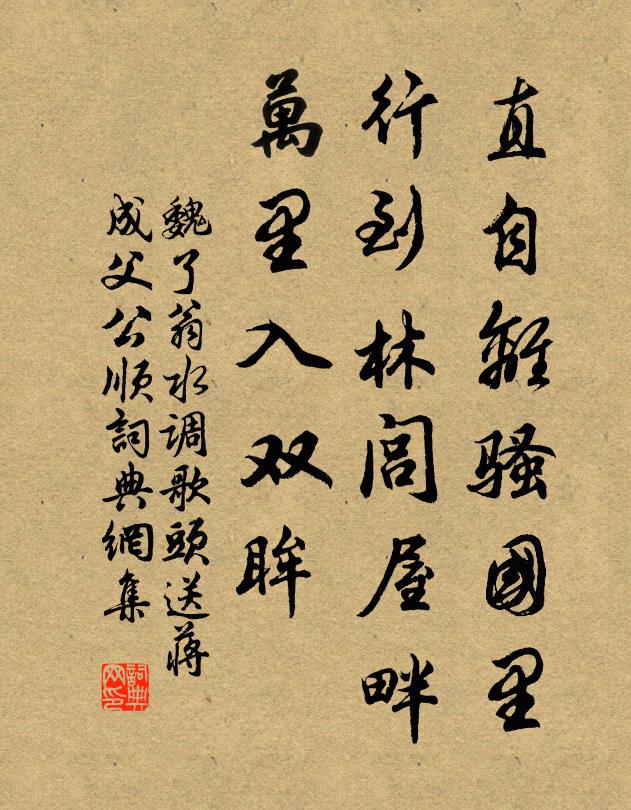 直自離騷國里
行到林閭屋畔
萬里入双眸
魏了翁水调歌頭送蔣
成父公順詞典網集
詞典
网印